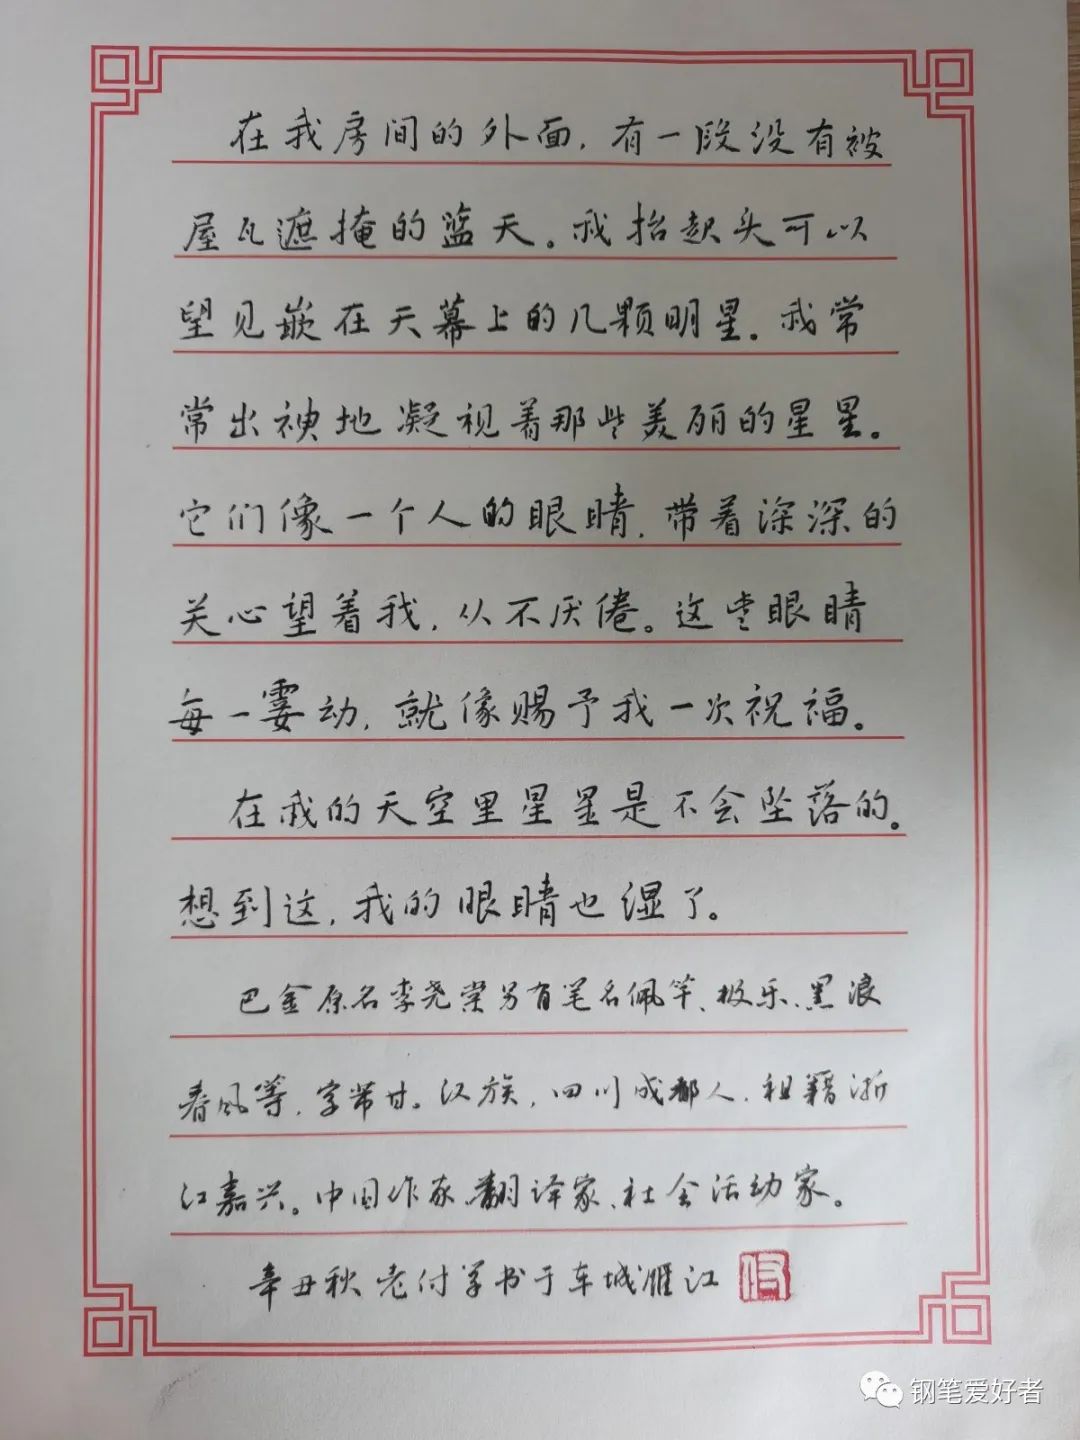 在我房间的外面，有一段没有被
屋瓦遮掩的蓝天。我抬起头可以
望见嵌在天幕上的几颗明星。我常
常出神地凝视着那些美丽的星星。
它们像一个人的眼睛，带着深深的
关心望着我，从不厌倦。这些眼睛
每一霎动，就像赐予我一次祝福。
在我的天空里星星是不会坠落的。
想到这，我的眼睛也湿了。
巴金原名李尧棠另有笔名佩竿、极乐、黑浪
春风等，字芾甘。汉族，四川成都人，祖籍浙
江嘉兴。中国作家、翻译家、社会活动家。
辛丑秋老付学书于车城雁江
付
钢笔爱好者